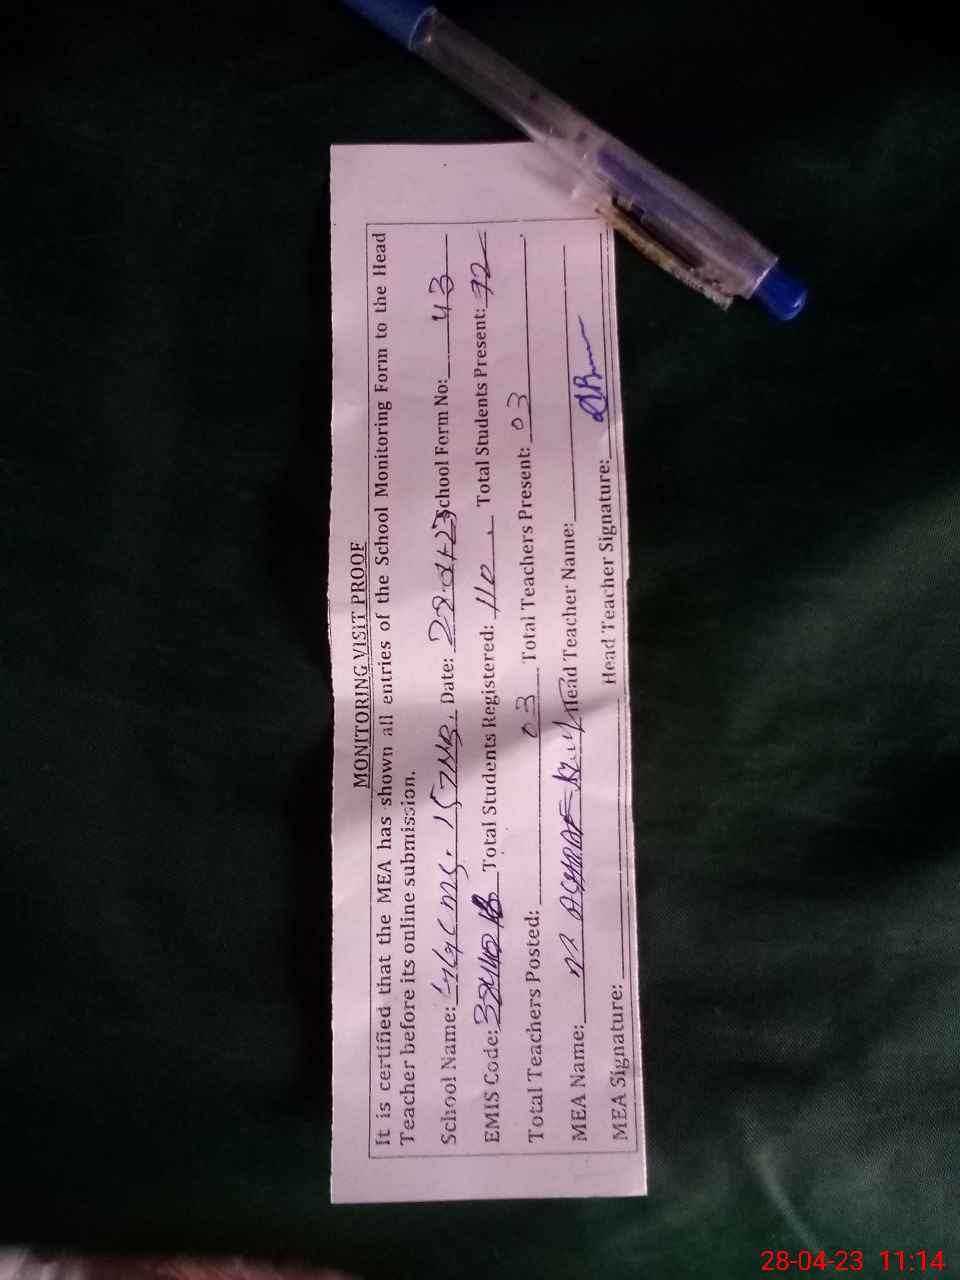 MONITORING VISIT PROOF
It is certified that the MEA has shown all entries of the School Monitoring Form to the Head
Teacher before its online submission.
School Name: Date: 28-04-23 School Form No: 43
EMIS Code: Total Students Registered: 110 Total Students Present: 72
Total Teachers Posted: 03 Total Teachers Present: 03
MEA Name: Head Teacher Name:
MEA Signature: Head Teacher Signature:
28-04-23 11:14